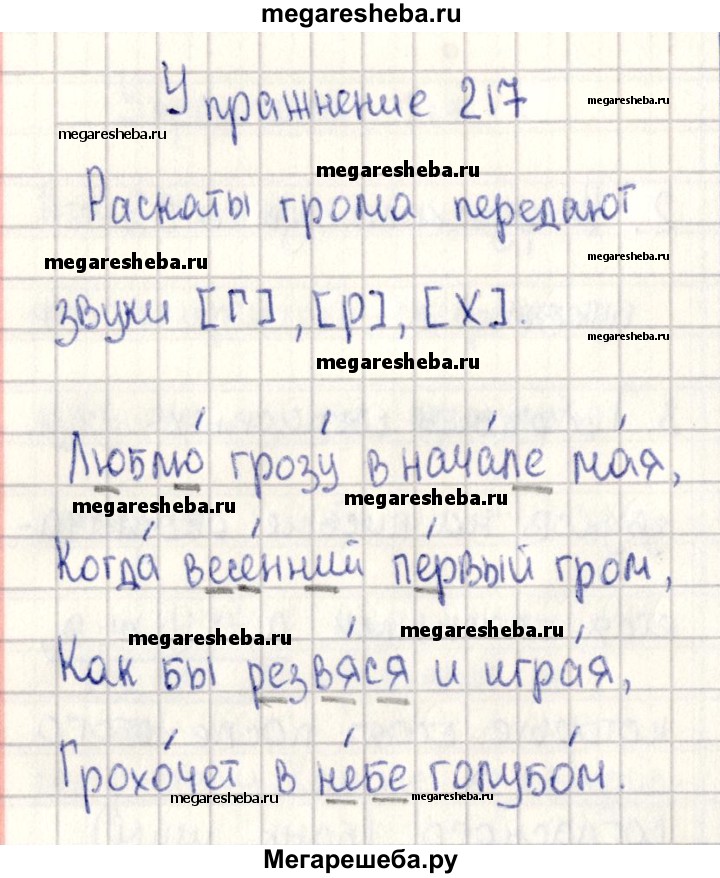 megaresheba.ru
Упражнение 217
megaresheba.ru
megaresheba.ru
megaresheba.ru
Раскаты грома передают
megaresheba.ru
megaresheba.ru
звуки [г], [р], [х].
megaresheba.ru
megaresheba.ru
Люблю́ грозу́ в нача́ле ма́я,
megaresheba.ru
megaresheba.ru
Когда́ весе́нний пе́рвый гром,
megaresheba.ru
megaresheba.ru
Как бы резвя́ся и игра́я,
Грохо́чет в не́бе голубо́м.
megaresheba.ru
megaresheba.ru
Мегарешеба.ру